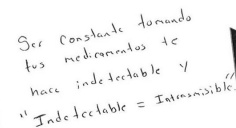 Ser constante tomando
tus medicamentos te
hace indetectable y
"Indetectable = Intransmisible."